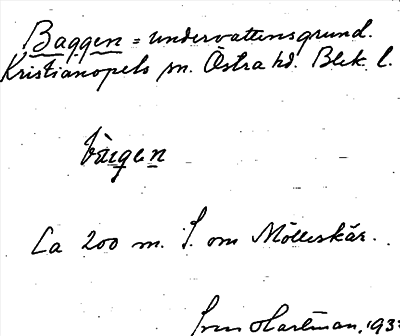 Baggen = undervattensgrund.
Kristianopels sn. Östra hd. Blek. l.
Ca 200 m. S. om Mölleskär.
Sven Hartman, 193